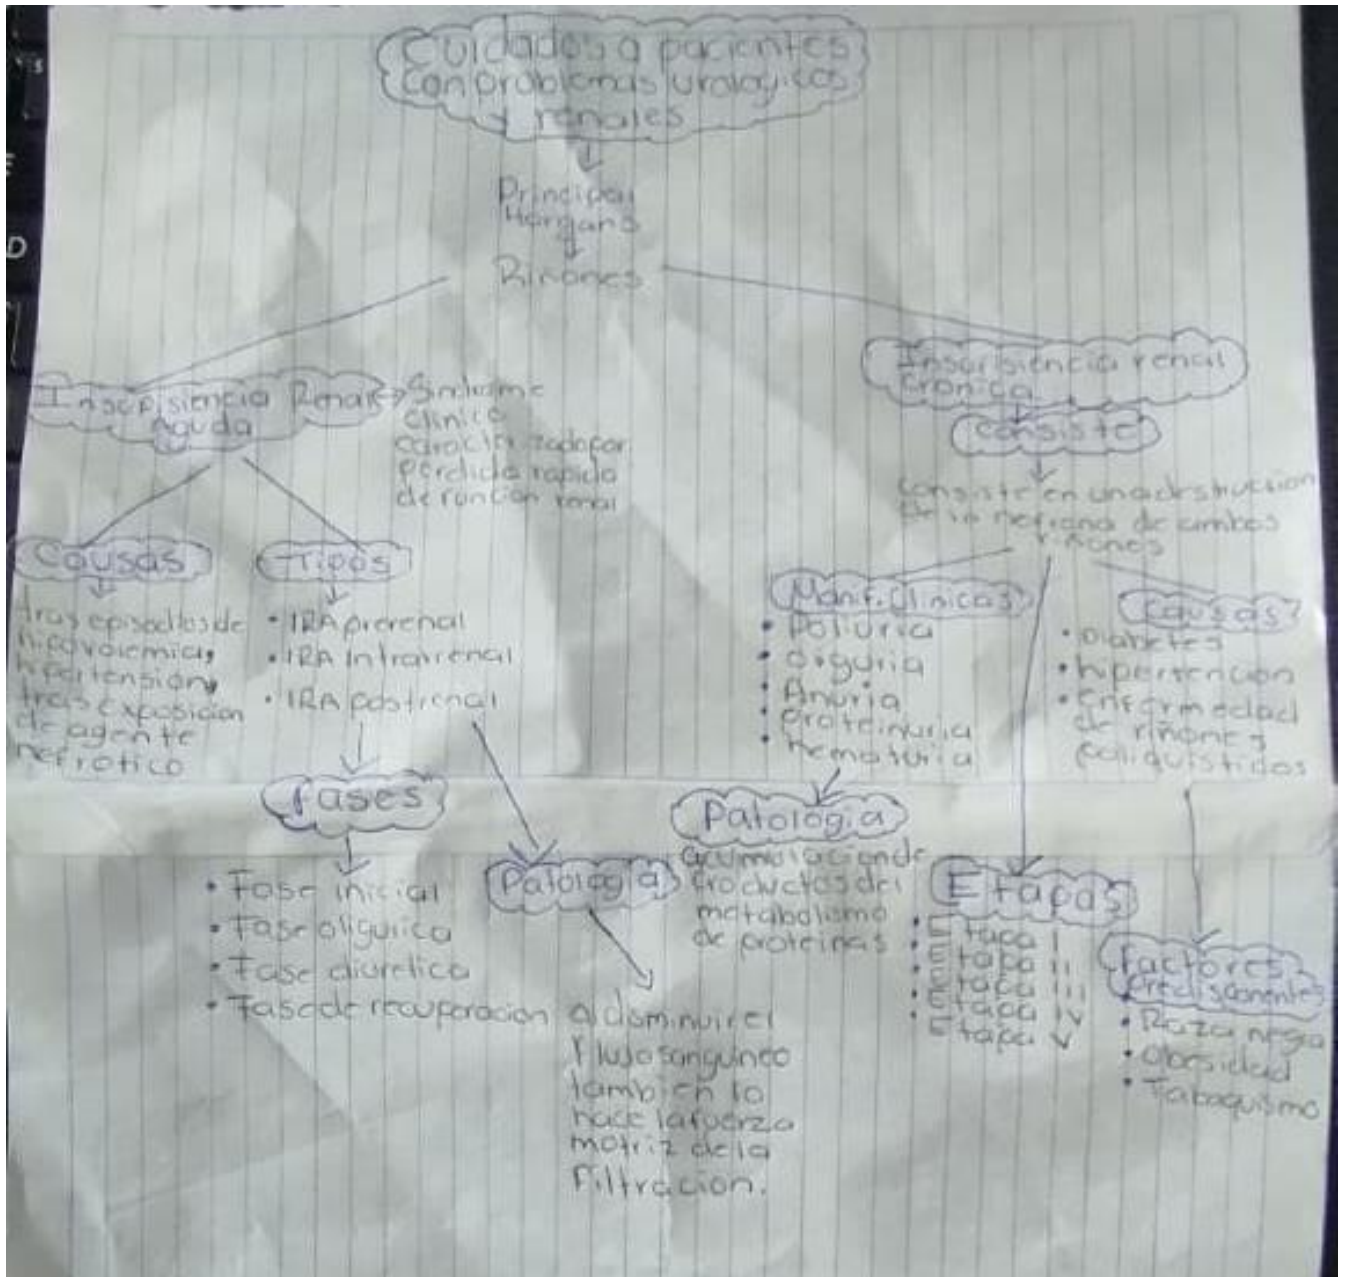 Cuidados a pacientes
con problemas urologicos
y renales
Principal
Horgano
Riñones
Insufisiencia Renal
Aguda
Sindrome
Clinico
caracterizado por
perdida rapida
de funcion renal
Causas
tras episodios de
hipovolemia,
hipertensión,
tras exposicion
de agente
nefrotico
Tipos
• IRA prerenal
• IRA Intrarrenal
• IRA postrenal
Fases
• Fase inicial
• Fase oligurica
• Fase diuretica
• Fase de recuperacion
Patologia
al disminuir el
flujo sanguineo
tambien lo
hace la fuerza
motriz de la
Filtracion.
Insufisiencia renal
Cronica
Consiste
Consiste en una destruccion
de la nefrona de ambos
riñones
Manif. Clinicas
• Poliuria
• Oliguria
• Anuria
• proteinuria
• hematuria
Patologia
acumulacion de
productos del
metabolismo
de proteinas
Etapas
• Etapa I
• Etapa II
• Etapa III
• Etapa IV
• Etapa V
Causas
• Diabetes
• hipertencion
• Enfermedad
de riñones
poliquistidos
Factores
Predisponentes
• Raza negra
• Obesidad
• Tabaquismo